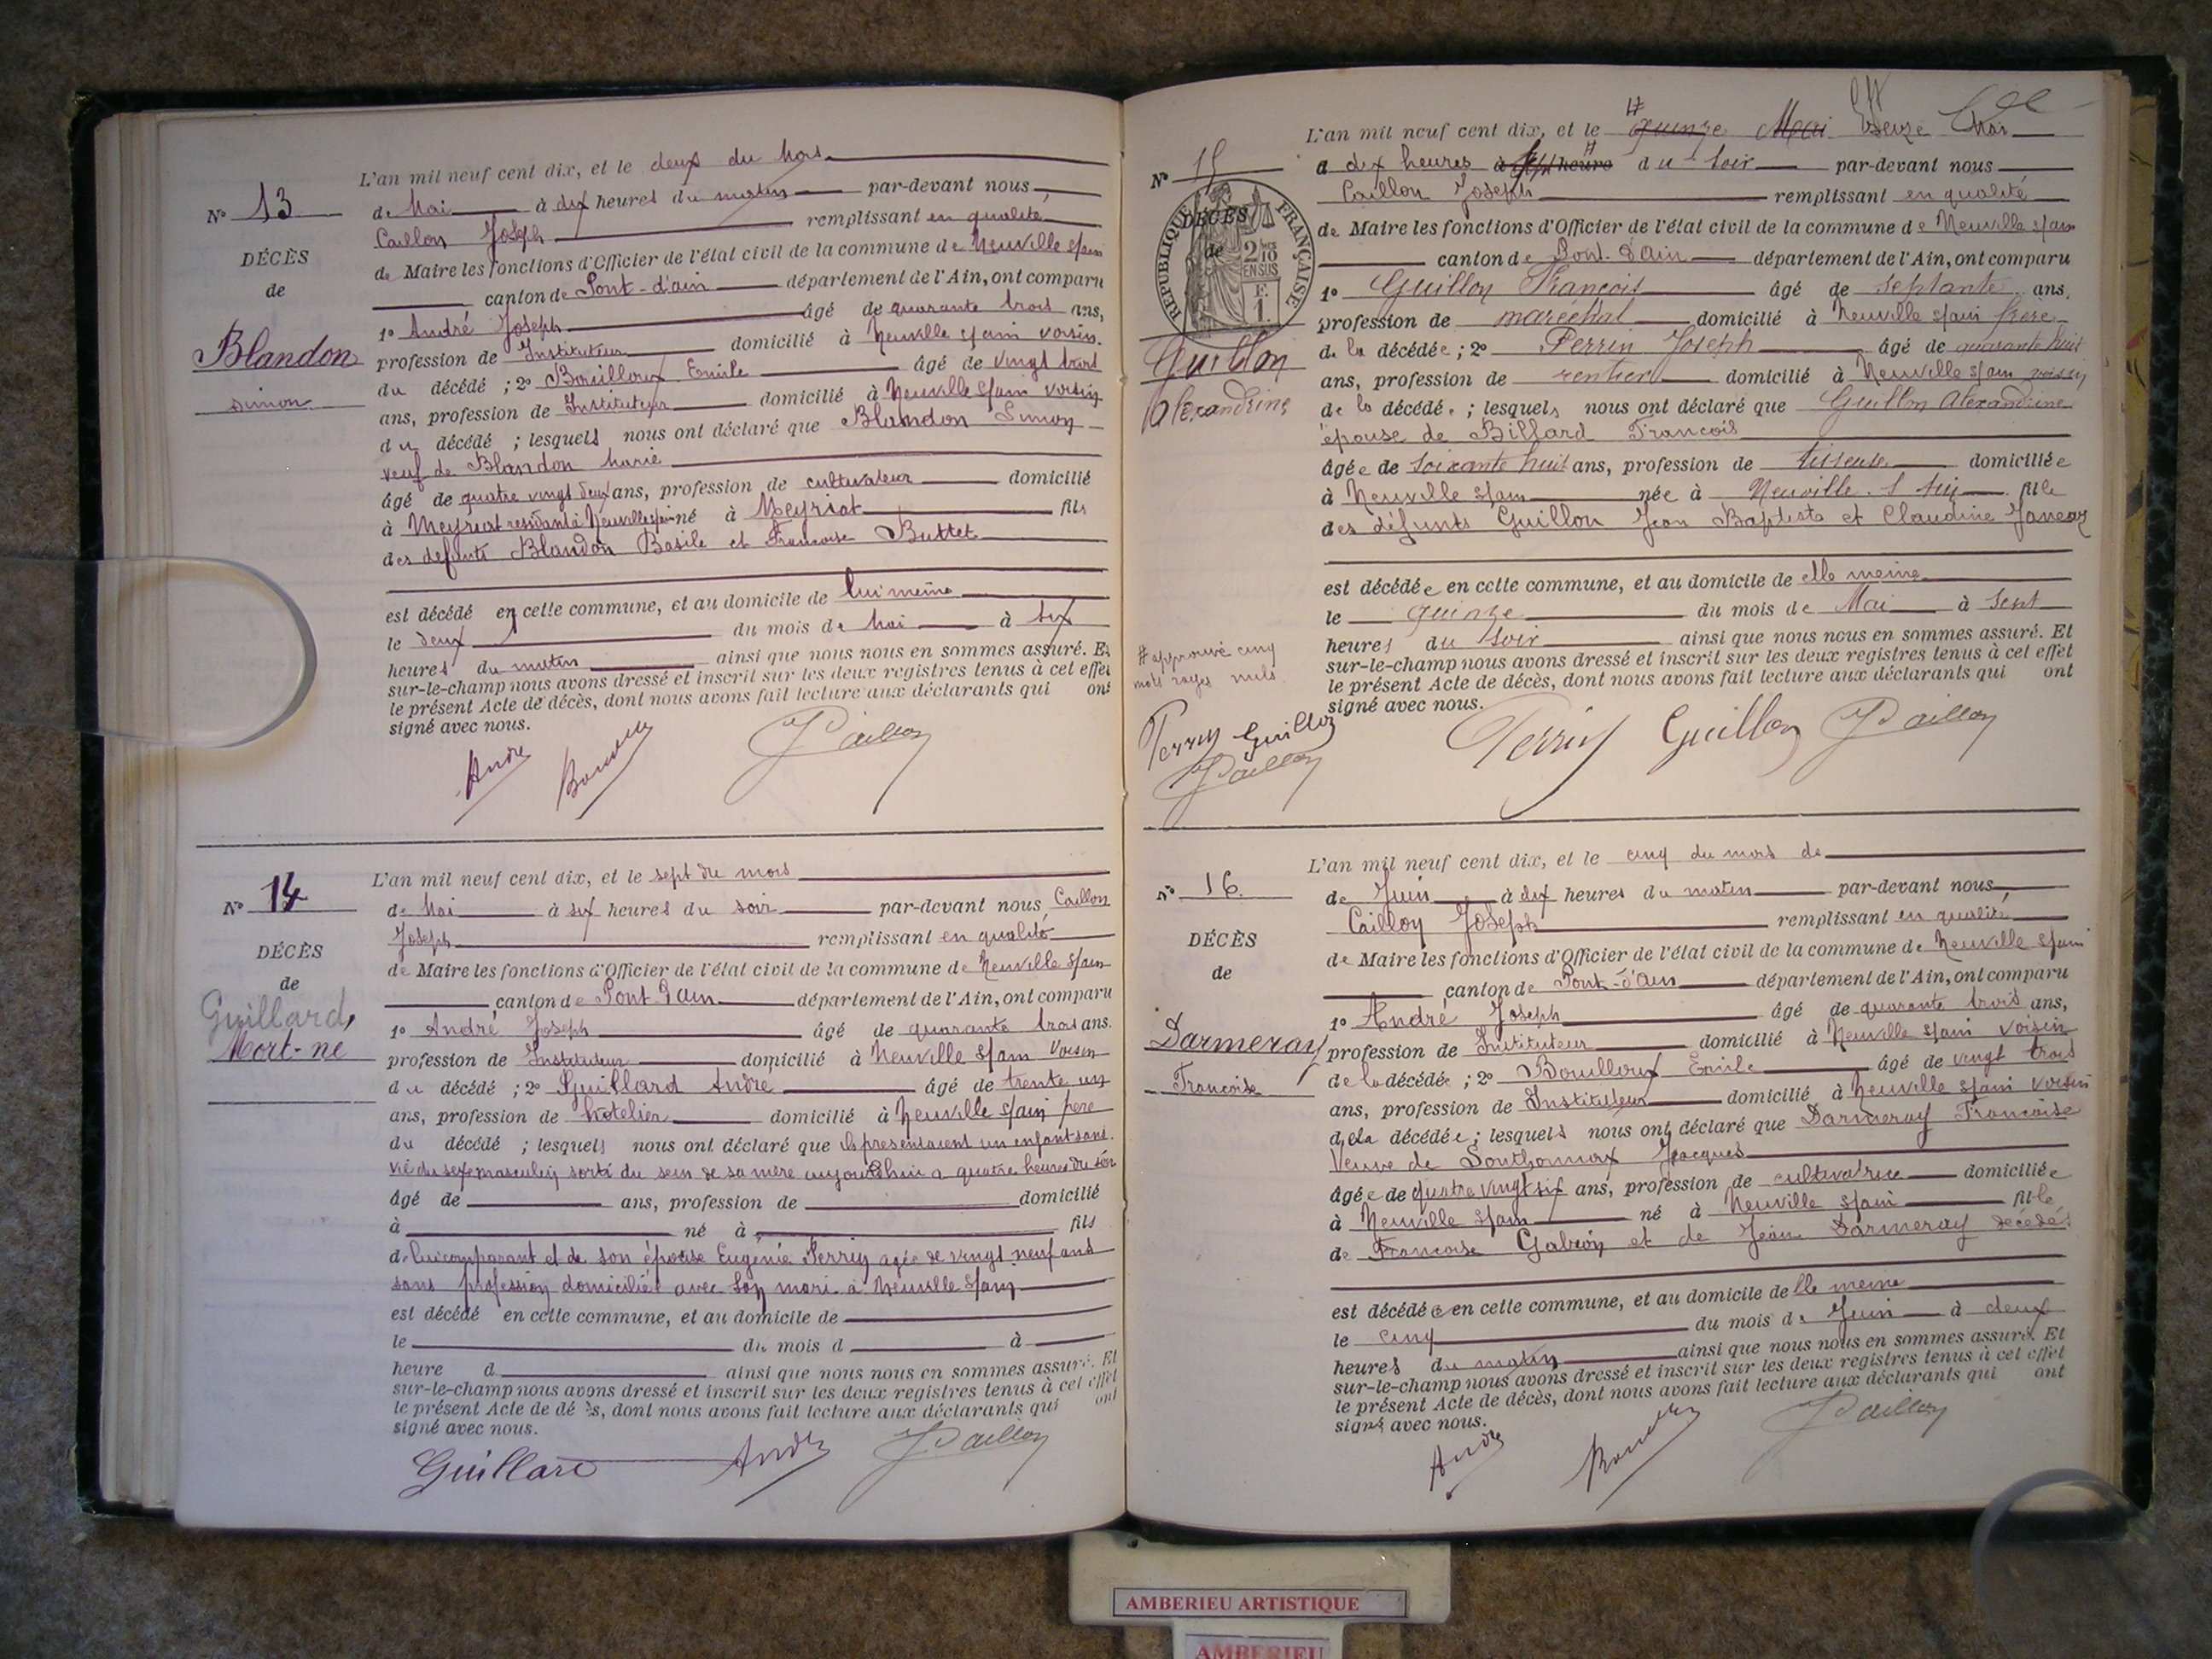 N° 13
DÉCÈS
de
Blandon
simon
L'an mil neuf cent dix, et le deux du mois
de Mai à dix heures du matin par-devant nous
Caillon Joseph remplissant en qualité
de Maire les fonctions d'Officier de l'état civil de la commune de Neuville s/ain
canton de Pont-d'ain département de l'Ain, ont comparu
1° André Joseph âgé de quarante trois ans,
profession de Instituteur domicilié à Neuville s/ain voisin
du décédé ; 2° Bouilloux Emile âgé de vingt trois
ans, profession de Instituteur domicilié à Neuville s/ain voisin
du décédé ; lesquels nous ont déclaré que Blandon Simon
veuf de Blandon Marie
âgé de quatre vingt deux ans, profession de cultivateur domicilié
à Meyriat residant à Neuville s/ain né à Meyriat fils
des defunts Blandon Basile et Francoise Buttet
est décédé en cette commune, et au domicile de lui meme
le deux du mois de Mai à six
heures du matin ainsi que nous nous en sommes assuré. Et
sur-le-champ nous avons dressé et inscrit sur les deux registres tenus à cet effet
le présent Acte de décès, dont nous avons fait lecture aux déclarants qui ont
signé avec nous.
André JCaillon
N° 14
DÉCÈS
de
Guillard,
Mort-né
L'an mil neuf cent dix, et le sept du mois
de Mai à six heures du soir par-devant nous Caillon
Joseph remplissant en qualité
de Maire les fonctions d'Officier de l'état civil de la commune de Neuville s/ain
canton de Pont d'ain département de l'Ain, ont comparu
1° André Joseph âgé de quarante trois ans.
profession de Instituteur domicilié à Neuville s/ain voisin
du décédé ; 2° Guillard André âgé de trente un
ans, profession de hotelier domicilié à Neuville s/ain père
du décédé ; lesquels nous ont déclaré que ils presentaient un enfant sans
vie du sexe masculin sorti du sein de sa mère aujourd'hui a quatre heures du soir
âgé de ans, profession de domicilié
à né à fils
de lui comparant et de son épouse Eugénie Perrin agée de vingt neuf ans
sans profession domiciliée avec son mari à Neuville s/ain
est décédé en cette commune, et au domicile de
le du mois d à
heure d ainsi que nous nous en sommes assuré. Et
sur-le-champ nous avons dressé et inscrit sur les deux registres tenus à cet effet
le présent Acte de décès, dont nous avons fait lecture aux déclarants qui ont
signé avec nous.
Guillard André JCaillon
N° 15
DÉCÈS
de
RÉPUBLIQUE FRANÇAISE
2/10
EN SUS
F.
1.
Guillon
Alexandrine
# approuvé cinq
mots rayés nuls.
Perrin Guillon
JCaillon
L'an mil neuf cent dix, et le # quinze Mai # seize Mai
a dix heures à sept heure # du soir par-devant nous
Caillon Joseph remplissant en qualité
de Maire les fonctions d'Officier de l'état civil de la commune de Neuville s/ain
canton de Pont-d'Ain département de l'Ain, ont comparu
1° Guillon François âgé de septante ans,
profession de maréchal domicilié à Neuville s/ain frère
de la décédée ; 2° Perrin Joseph âgé de quarante huit
ans, profession de rentier domicilié à Neuville s/ain voisin
de la décédée ; lesquels nous ont déclaré que Guillon Alexandrine
épouse de Billard Francois
âgée de soixante huit ans, profession de tisseuse domiciliée
à Neuville s/ain née à Neuville s/ain fille
des défunts Guillon Jean Baptiste et Claudine
est décédée en cette commune, et au domicile de elle meme
le quinze du mois de Mai à sept
heures du soir ainsi que nous nous en sommes assuré. Et
sur-le-champ nous avons dressé et inscrit sur les deux registres tenus à cet effet
le présent Acte de décès, dont nous avons fait lecture aux déclarants qui ont
signé avec nous.
Perrin Guillon JCaillon
N° 16.
DÉCÈS
de
Darmeray
Francoise
L'an mil neuf cent dix, et le cinq du mois de
de Juin à dix heures du matin par-devant nous
Caillon Joseph remplissant en qualité
de Maire les fonctions d'Officier de l'état civil de la commune de Neuville s/ain
canton de Pont-d'ain département de l'Ain, ont comparu
1° André Joseph âgé de quarante trois ans,
profession de Instituteur domicilié à Neuville s/ain voisin
de la décédée ; 2° Bouilloux Emile âgé de vingt trois
ans, profession de Instituteur domicilié à Neuville s/ain voisin
de la décédée ; lesquels nous ont déclaré que Darmeray Francoise
Veuve de Jacques
âgée de quatre vingt six ans, profession de cultivatrice domiciliée
à Neuville s/ain né à Neuville s/ain fille
de Francoise et de Jean Darmeray décédés
est décédée en cette commune, et au domicile de lle meme
le cinq du mois de Juin à deux
heures du matin ainsi que nous nous en sommes assuré. Et
sur-le-champ nous avons dressé et inscrit sur les deux registres tenus à cet effet
le présent Acte de décès, dont nous avons fait lecture aux déclarants qui ont
signé avec nous.
André JCaillon
AMBERIEU ARTISTIQUE
AMBERIEU